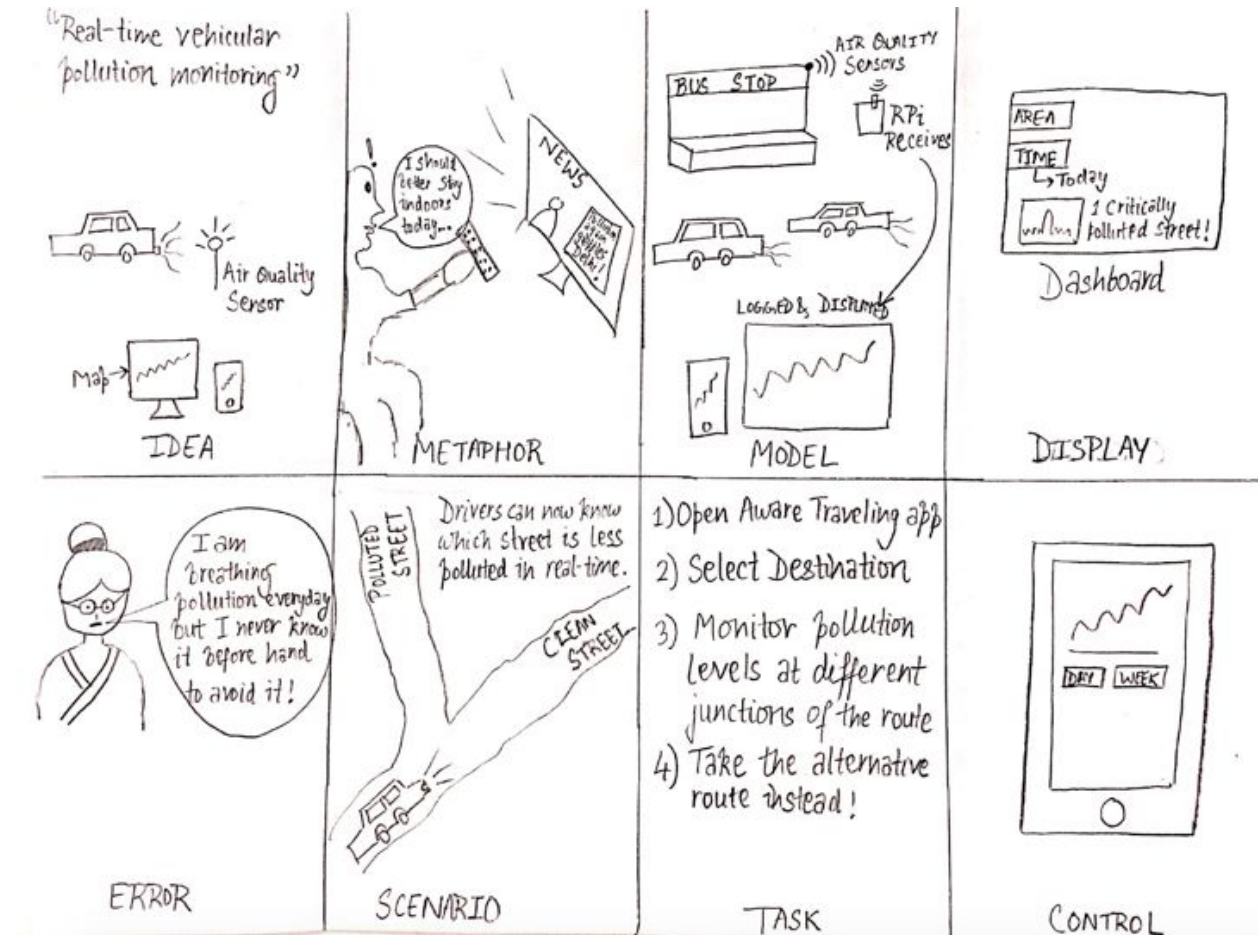 "Real-time vehicular
pollution monitoring"
Air Quality
Sensor
Map
IDEA
I should
better stay
indoors
today...
!
NEWS
Pollution
again
Delhi!
METAPHOR
BUS STOP
AIR QUALITY
Sensors
RPi
Receives
LOGGED & DISPLAYED
MODEL
AREA
TIME
Today
1 Critically
polluted street!
Dashboard
DISPLAY
I am
breathing
pollution everyday
but I never know
it before hand
to avoid it!
ERROR
Drivers can now know
which street is less
polluted in real-time.
POLLUTED
STREET
CLEAN
STREET
SCENARIO
1) Open Aware Traveling app
2) Select Destination
3) Monitor pollution
levels at different
junctions of the route
4) Take the alternative
route instead!
TASK
DAY WEEK
CONTROL